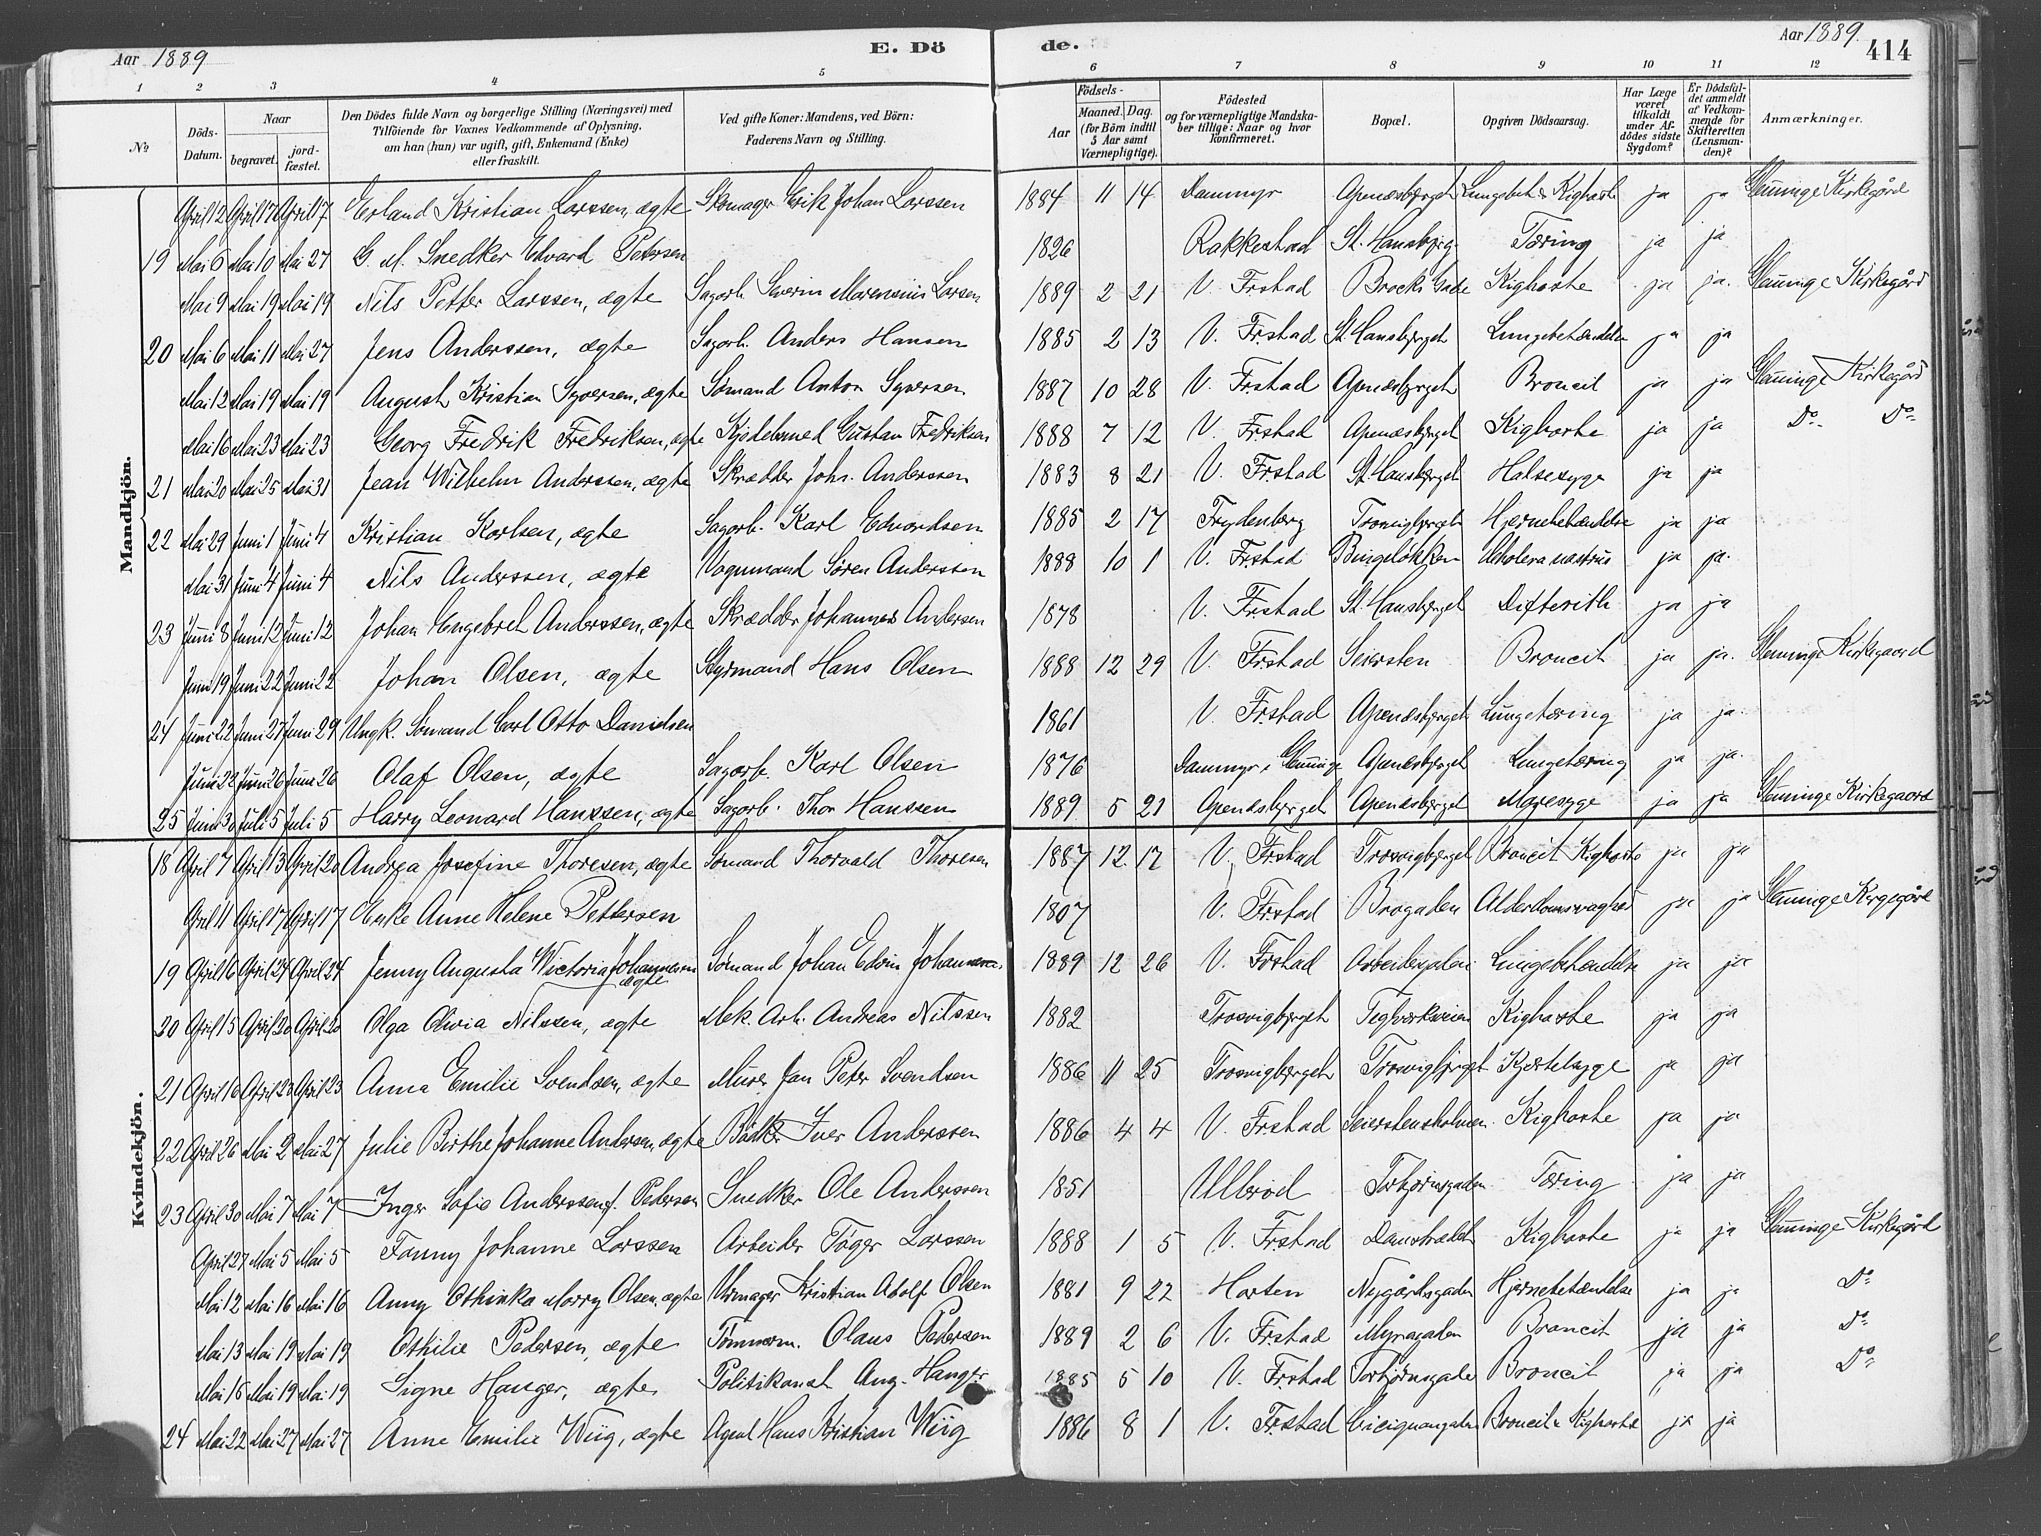 Aar 1889 E. Dö de. Aar 1889. 414
1 2 3 4 5 6 7 8 9 10 11 12
No Döds-Datum. Naar begravet. jordfæstet. Den Dödes fulde Navn og borgerlige Stilling (Næringsvei) med Tilföiende for Voxnes Vedkommende af Oplysning, om han (hun) var ugift, gift, Enkemand (Enke) eller fraskilt. Ved gifte Koner: Mandens, ved Börn: Faderens Navn og Stilling. Födsels- Aar Maaned. Dag. (for Börn indtil 5 Aar samt Værnepligtige). Födested og for værnepligtige Mandskaber tillige: Naar og hvor konfirmeret. Bopæl. Opgiven Dödsaarsag. Har Læge været tilkaldt under Afdödes sidste Sygdom? Er Dödsfaldet anmeldt af Vedkommende for Skifteretten (Lensmanden)? Anmærkninger.
Mandkjön.
April 12 April 17 April 17 Erland Kristian Larssen, ægte Skomager Erik Johan Larssen 1884 11 14 Dammyr Apenæsbjerget Lungebet. & Kighoste ja ja Glemminge Kirkegård
19 Mai 6 Mai 10 Mai 27 G. M. Snedker Edvard Petersen 1826 Rakkestad St. Hansbjerg. Tæring ja ja
Mai 9 Mai 19 Mai 19 Nils Petter Larssen, ægte Sagarb. Severin Marensius Larsen 1889 2 21 V. Frstad Brocks Gade Kighoste ja ja. Glemminge Kirkegård
20 Mai 6 Mai 11 Mai 27 Jens Anderssen, ægte Sagarb. Anders Hansen 1885 2 13 V. Frstad St. Hansbjerget Lungebetændelse ja ja
Mai 12 Mai 19 Mai 19 August Kristian Syversen, ægte Sømand Anton Syversen 1887 10 28 V. Frstad Apenæsbjerget Broncit ja ja Glemminge Kirkegård
Mai 16 Mai 23 Mai 23 Georg Fredrik Fredriksen, ægte Kjedelsmed Gustav Fredriksen 1888 7 12 V. Frstad Apenæsbjerget Kighoste ja ja Do Do
21 Mai 20 Mai 25 Mai 31 Jean Wilhelm Anderssen, ægte Skrædder Johs. Anderssen 1883 8 21 V. Frstad St. Hansbjerget Halsesyge ja ja
22 Mai 29 Juni 1 Juni 4 Kristian Karlsen, ægte Sagarb. Karl Edvardsen 1885 2 17 Frydenberg Trosvigbjerget Hjernebetændelse ja ja
Mai 31 Juni 4 Juni 4 Nils Anderssen, ægte Vognmand Søren Anderssen 1888 10 1 V. Frstad Bingeløkken Cholera nostras ja ja.
23 Juni 8 Juni 12 Juni 12 Johan Engebret Anderssen, ægte Skrædder Johannes Andersen 1878 V. Frstad St. Hansbjerget Difterith ja ja
Juni 19 Juni 22 Juni 22 Johan Olsen, ægte Styrmand Hans Olsen 1888 12 29 V. Frstad Seiersten Broncit ja ja. Glemminge Kirkegaard
24 Juni 22 Juni 27 Juni 29 Ungk. Sømand Carl Otto Danielsen 1861 V. Frstad Apenæsbjerget Lungetæring ja ja.
Juni 22 Juni 26 Juni 26 Olaf Olsen, ægte Sagarb. Karl Olsen 1876 Dammyr, Glemminge Apenæsbjerget Lungetæring ja ja.
25 Juni 30 Juli 5 Juli 5 Harry Leonard Hanssen, ægte Sagarb. Thor Hanssen 1889 5 21 Apenæsbjerget Apenæsbjerget Mavesyge ja ja Glemminge Kirkegaard
Kvindekjön.
18 April 7 April 13 April 20 Andrea Josefine Thoresen, ægte Sømand Thorvald Thoresen 1887 12 17 V. Frstad Trosvigbjerget Broncit Kighoste ja ja
April 11 April 17 April 17 Enke Anne Helene Pettersen 1807 V. Frstad Brogaden Alderdomsvaghed ja ja Glemminge Kirgegård
19 April 16 April 24 April 24 Jenny Augusta Wictoria Johannesen ægte Sømand Johan Edvin Johannesen 1889 12 26 V. Frstad Arbeidergaden Lungebetændelse ja ja
20 April 15 April 20 April 20 Olga Olivia Nilssen, ægte Mek. Arb. Andreas Nilssen 1882 Trosvigbjerget Teglværksveien Kighoste ja ja
21 April 16 April 23 April 23 Anna Emilie Svendsen, ægte Murer Jan Peter Svendsen 1886 11 25 Trosvigberget Trosvigbjerget Kjertelsyge ja ja
22 April 26 Mai 2 Mai 27 Julie Birthe Johanne Andersen, ægte Bødker Iver Anderssen 1886 4 4 V. Frstad Seierstensholmen. Kighoste ja ja
23 April 30 Mai 7 Mai 7 Inger Sofie Anderssen f. Pedersen Snedker Ole Anderssen 1851 Ullerød Torbjørnsgaden Tæring ja ja
April 27 Mai 5 Mai 5 Fanny Johanne Larssen Arbeider Tøger Larssen 1888 1 5 V. Frstad Damstrædet Kighoste ja ja Glemminge Kirkegård
Mai 12 Mai 16 Mai 16 Anny Othinka Marry Olsen, ægte Urmager Kristian Adolf Olsen 1881 9 22 Horten Nygårdsgaden Hjernebetændelse ja ja Do
Mai 13 Mai 19 Mai 19 Othilie Pedersen, ægte Tømmerm. Olaus Pedersen 1889 2 6 V. Frstad Myragaden Broncit ja ja Do
Mai 15 Mai 19 Mai 19 Signe Hanger, ægte Politikonst. Aug. Hanger 1885 5 10 V. Frstad Torbjørnsgade Broncit ja ja Do
24 Mai 22 Mai 27 Mai 27 Anne Emilie Wiig, ægte Agent Hans Kristian Wiig 1886 8 1 V. Frstad Broncit & Kighoste ja ja